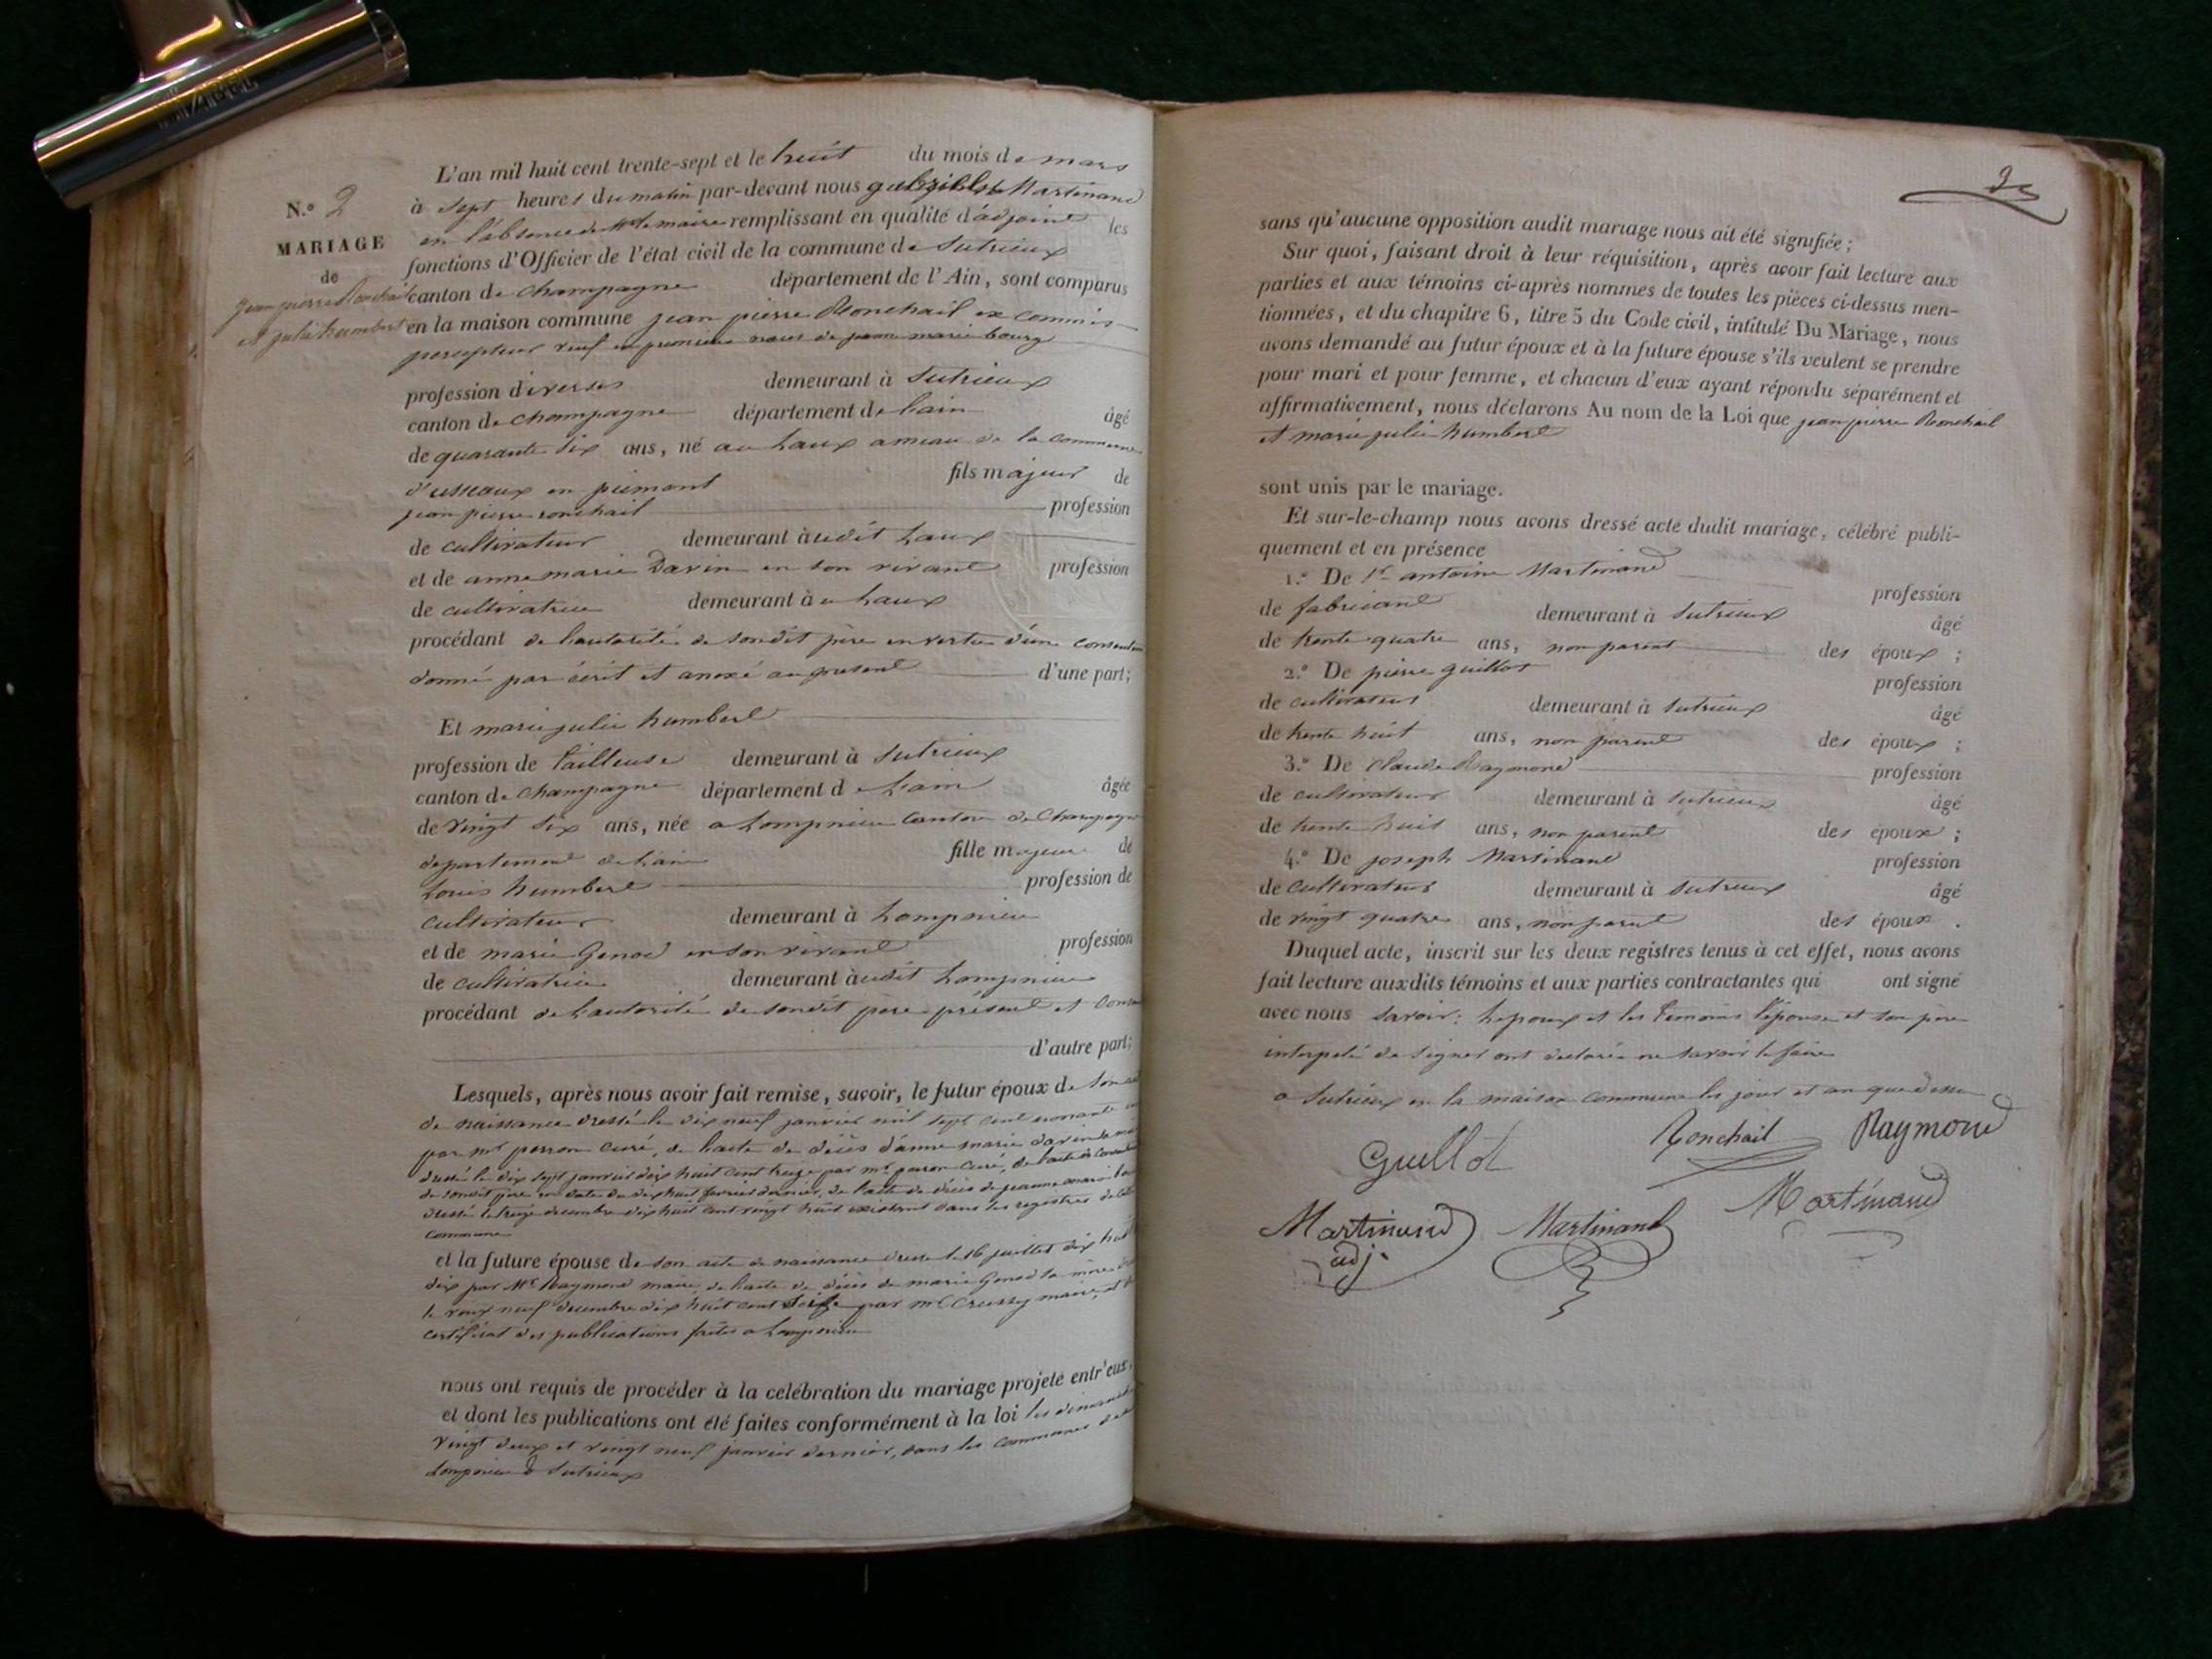 N.° 2
MARIAGE
de
jean pierre Ronchail
et julie humbert
L'an mil huit cent trente-sept et le huit du mois de mars
à sept heures du matin par-devant nous Martinand
en l'absence de Mr le maire remplissant en qualité d'adjoint les
fonctions d'Officier de l'état civil de la commune de Sutrieux
canton de champagne département de l'Ain, sont comparus
en la maison commune jean pierre Ronchail ex commis
percepteur veuf en premiere noces de jeanne marie bourg
profession diverses demeurant à Sutrieux
canton de champagne département de lain âgé
de quarante six ans, né au Laux ameau de la commune
d'usseaux en piémont fils majeur de
jean pierre ronchail profession
de cultivateur demeurant audit Laux
et de anne marie Davin en son vivant profession
de cultivatrice demeurant à u Laux
procédant de lautorité de sondit père en vertu d'un
donné par écrit et anexé au présent d'une part;
Et marie julie humbert
profession de tailleuse demeurant à Sutrieux
canton de champagne département de Lain âgée
de vingt six ans, née a Lompnieu canton de Champagne
departement de Lain fille majeure de
Louis humbert profession de
cultivateur demeurant à Lompnieu
et de marie Genod en son vivant profession
de cultivatrice demeurant audit Lompnieu
procédant de Lautorité de sondit père présent et
d'autre part;
Lesquels, après nous avoir fait remise, savoir, le futur époux de son
de naissance dressé le dix neuf janvier mil sept cent nonante
par mr perron curé, de lacte de décès d'anne marie davin
dressé le dix sept janvier dix huit cent treize par mr perron curé, de lacte de
de sondit père en date du dix huit fevrier dernier, de l'acte de décès de jeanne marie
dressé le treize decembre dix huit cent vingt huit existant dans les registres de
commune
et la future épouse de son acte de naissance dressé le 16 juillet dix huit
dix par Mr Raymond maire, de lacte de décès de marie Genod sa mère
le vingt neuf decembre dix huit cent seize par mr Crussy maire, et
certificat des publications faites a Lompnieu
nous ont requis de procéder à la célébration du mariage projeté entr'eux,
et dont les publications ont été faites conformément à la loi les dimanches
vingt deux et vingt neuf janvier dernier, dans les communes de
Lompnieu & Sutrieux
sans qu'aucune opposition audit mariage nous ait été signifiée;
Sur quoi, faisant droit à leur réquisition, après avoir fait lecture aux
parties et aux témoins ci-après nommés de toutes les pièces ci-dessus men-
tionnées, et du chapitre 6, titre 5 du Code civil, intitulé Du Mariage, nous
avons demandé au futur époux et à la future épouse s'ils veulent se prendre
pour mari et pour femme, et chacun d'eux ayant répondu séparément et
affirmativement, nous déclarons Au nom de la Loi que jean pierre Ronchail
et marie julie humbert
sont unis par le mariage.
Et sur-le-champ nous avons dressé acte dudit mariage, célébré publi-
quement et en présence
1.° De Sr antoine Martinand
profession
de fabricant demeurant à Sutrieux âgé
de trente quatre ans, non parent des époux;
2.° De pierre guillot profession
de cultivateur demeurant à Sutrieux âgé
de trente huit ans, non parent des époux;
3.° De claude Raymond profession
de cultivateur demeurant à Sutrieux âgé
de trente huit ans, non parent des époux;
4.° De joseph Martinand profession
de cultivateur demeurant à Sutrieux âgé
de vingt quatre ans, non parent des époux.
Duquel acte, inscrit sur les deux registres tenus à cet effet, nous avons
fait lecture auxdits témoins et aux parties contractantes qui ont signé
avec nous savoir: Lepoux et les temoins l'épouse et son père
interpelé de signer ont déclaré ne savoir le faire
a Sutrieux en la maison commune les jour et an que dessus
Guillot Ronchail Raymond
Martinand adj. Martinand Martinand